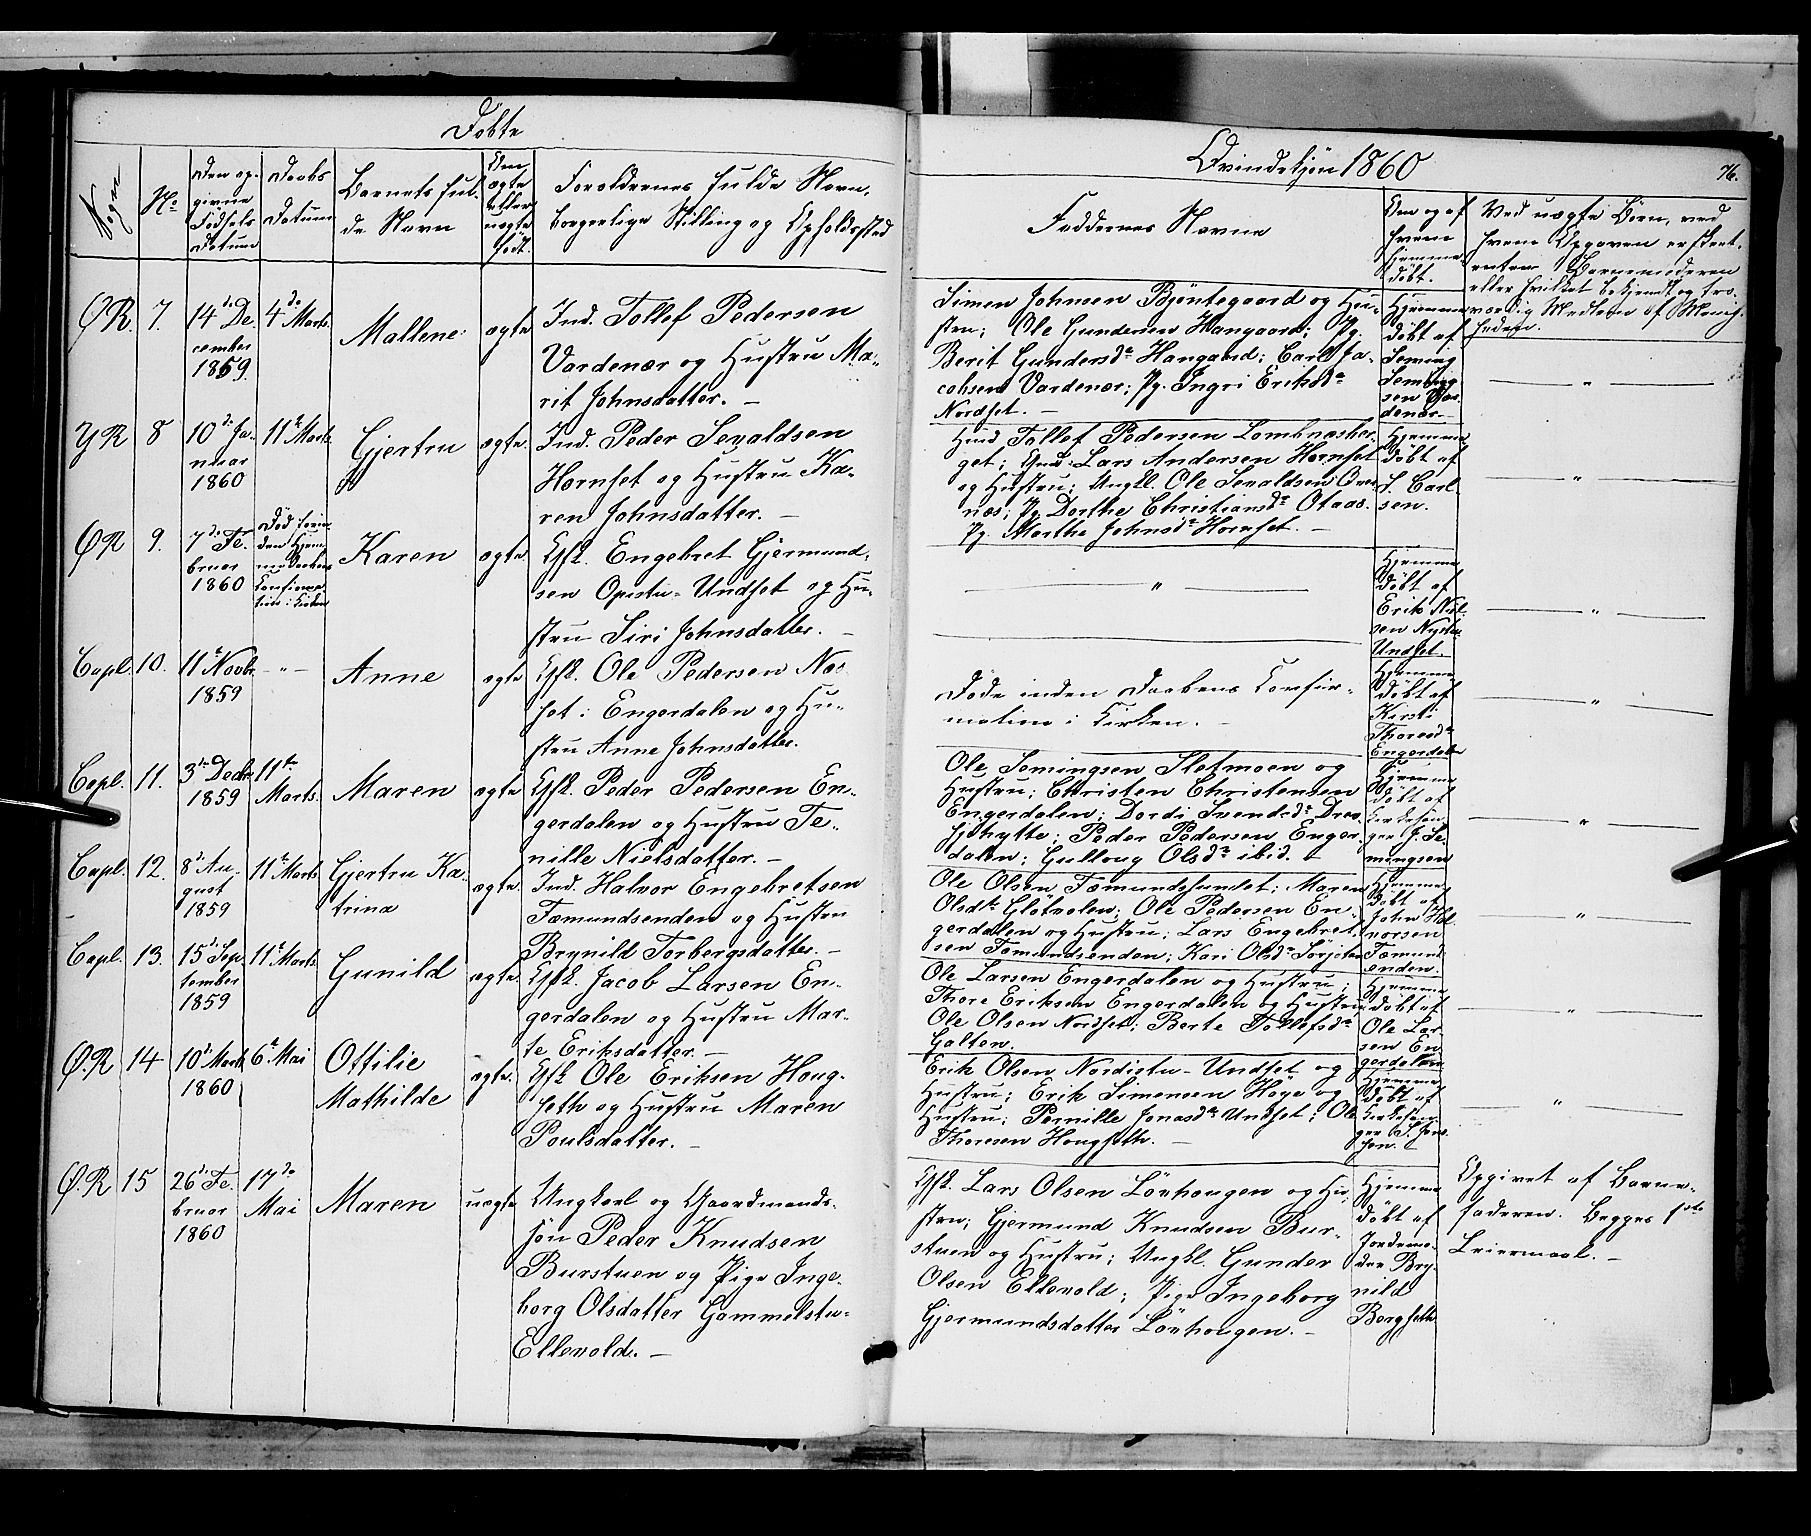 Döbte
Qvindekjön 1860
76.
Sogn
No
Den op-
givne
Födsels
Datum
Daabs
Datum
Barnets ful-
de Navn
Om
ægte
eller
uægte
födt.
Forældrenes fulde Navn,
borgerlige Stilling og Opholdssted
Faddernes Navne
Om og af
hvem
hjemme-
döbt.
Ved uægte Börn, ved
hvem Opgaven er skeet,
enten Barnemoderen
eller hvilket bekjendt og tro-
værdig Medlem af Menig-
heden.
ØR. 7. 14de De-
cember
1859.
4de Marts
Mallene
ægte
Ind. Tollef Pedersen
Vardenær og Hustru Ma-
rit Johnsdatter. —
Simen Johnsen Bjöntegaard og Hu-
stru; Ole Gundersen Hangaard; Pg.
Berit Gundersdr Hangaard; Carl Ja-
cobsen Vardenær; Pg. Ingri Eriksdr
Nordset. —
Hjemme
döbt af
Seming
Seming-
sen Var-
denær.
— " —
YR 8 10de Ja-
nuar
1860
11te Marts
Gjertru
ægte
Ind. Peder Sevaldsen
Hornset og Hustru Ka-
ren Johnsdatter. —
Hmd Tollef Pedersen Lombnæsber-
get; Lars Andersen Hornset
og Hustru; Ungkl. Ole Sevaldsen
næs; Pg. Dorthe Christiansdr Otaas.
Pg. Marthe Johnsdr Hornset. —
Hjemme
döbt af
S. Carl-
sen.
— " —
ØR 9. 7de Fe-
bruar
1860
Död forin-
den Hjem-
medaabens
Confirma-
tion i Kirken
Karen
ægte
Gsk. Engebret Gjermund-
sen Opistu-Undset og Hu-
stru Siri Johnsdatter. —
— " —
Hjemme
döbt af
Erik Nil-
sen Nystu
Undset.
— " —
Capl. 10. 11te Novbr
1859
— " —
Anne
ægte
Gsk. Ole Pedersen Næs-
set i Engerdalen og Hu-
stru Anne Johnsdatter.
Döde inden Daabens Confir-
mation i Kirken. —
Hjemme
döbt af
Kirsti
Thoresdr
Engerdalen
— " —
Capl. 11. 3de Decbr
1859
11te
Marts.
Maren
ægte
Gsk. Peder Pedersen En-
gerdalen og Hustru Te-
nille Nielsdatter. —
Ole Semingsen Sletmoen og
Hustru; Christen Christensen
Engerdalen; Dordi Svendsdr Drev-
sjöhytte; Peder Pedersen Enger-
dalen; Gulloug Olsdr ibid. —
Hjemme
döbt af
Kirkesan-
ger J. Se-
mingsen
— " —
Capl. 12. 8de Au-
gust
1859
11te Marts.
Gjertru Ka-
trina
ægte
Ind. Halvor Engebretsen
Fæmundsenden og Hustru
Brynild Torbergsdatter. —
Ole Olsen Fæmundsundet; Maren
Olsdtr Glötvolen; Ole Pedersen En-
gerdalen og Hustru; Lars Engebret-
sen Fæmundsenden; Kari Olsdr
Hjemme
döbt af
John Hal-
vorsen
Fæmund-
enden.
— " —
Capl. 13. 15de Sep-
tember
1859
11te Marts.
Gunild
ægte
Gsk. Jacob Larsen En-
gerdalen og Hustru Mar-
te Eriksdatter. —
Ole Larsen Engerdalen og Hustru;
Thore Eriksen Engerdalen og Hustru
Ole Olsen Nordset; Berte Tollefsdr
Galten.
Hjemme
döbt af
Ole Lar-
sen En-
gerdalen
— " —
Ø.R 14 10de Marts
1860
6te Mai
Ottilie
Mathilde
ægte.
Gsk Ole Eriksen Houg-
seth og Hustru Maren
Poulsdatter. —
Erik Olsen Nordistu-Undset og
Hustru; Erik Simensen Höye og
Hustru; Pernille Jonasdr Undset; Ole
Thoresen Hougseth. —
Hjemme
döbt af
Kirkesan-
ger S. Jons-
sen.
— " —
Ø.R 15 26de Fe-
bruar
1860
17de
Mai
Maren
uægte
Ungkarl og Gaardmands-
sön Peder Knudsen
Burstuen og Pige Inge-
borg Olsdatter Gammelstu-
Ellevold. —
Gsk. Lars Olsen Lövhougen og Hu-
stru; Gjermund Knudsen Bur-
stuen og Hustru; Ungkl. Gunder
Olsen Ellevold; Pige Ingeborg
Gjermundsdatter Lövhougen. —
Hjemme
döbt af
Jordemo-
der Bry-
nild
Bergseth
Opgivet af Barne-
faderen. Begges 1ste
Leiermaal. —